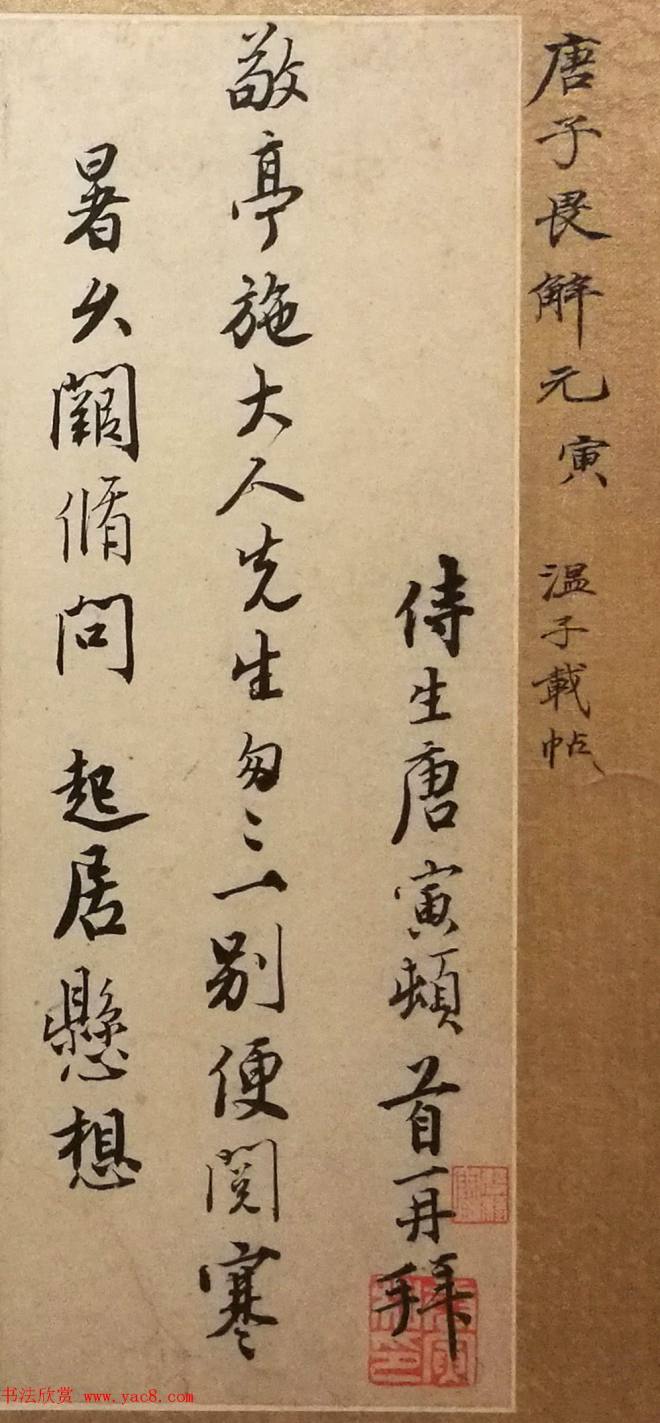 唐子畏解元寅 温子載帖
侍生唐寅頓首再拜
敬亭施大人先生匆〻一别便閲寒
暑久闊脩問 起居懸想
书法欣赏 www.yac8.com